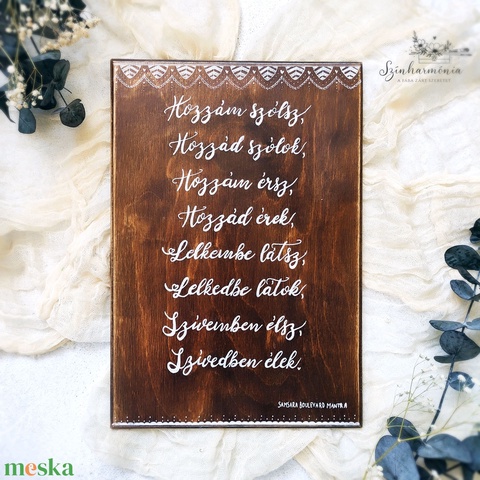 Színharmónia
Hozzám szólsz,
Hozzád szólok,
Hozzám érsz,
Hozzád érek,
Lelkembe látsz,
Lelkedbe látok,
Szívemben élsz,
Szívedben élek.
SAMSARA BOULEVARD MANTRA
meska